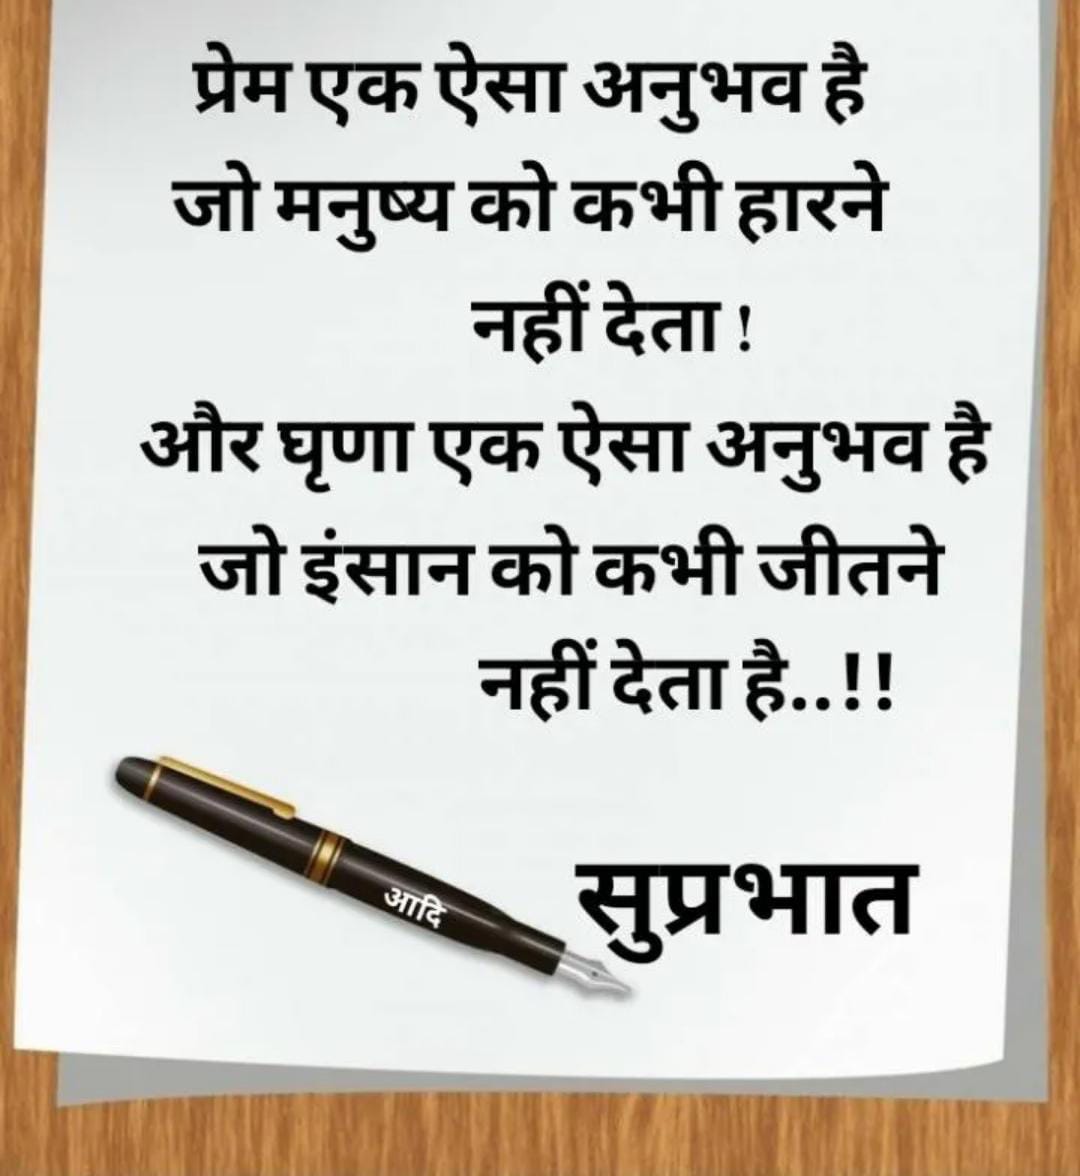 प्रेम एक ऐसा अनुभव है
जो मनुष्य को कभी हारने
नहीं देता !
और घृणा एक ऐसा अनुभव है
जो इंसान को कभी जीतने
नहीं देता है..!!
आदि
सुप्रभात